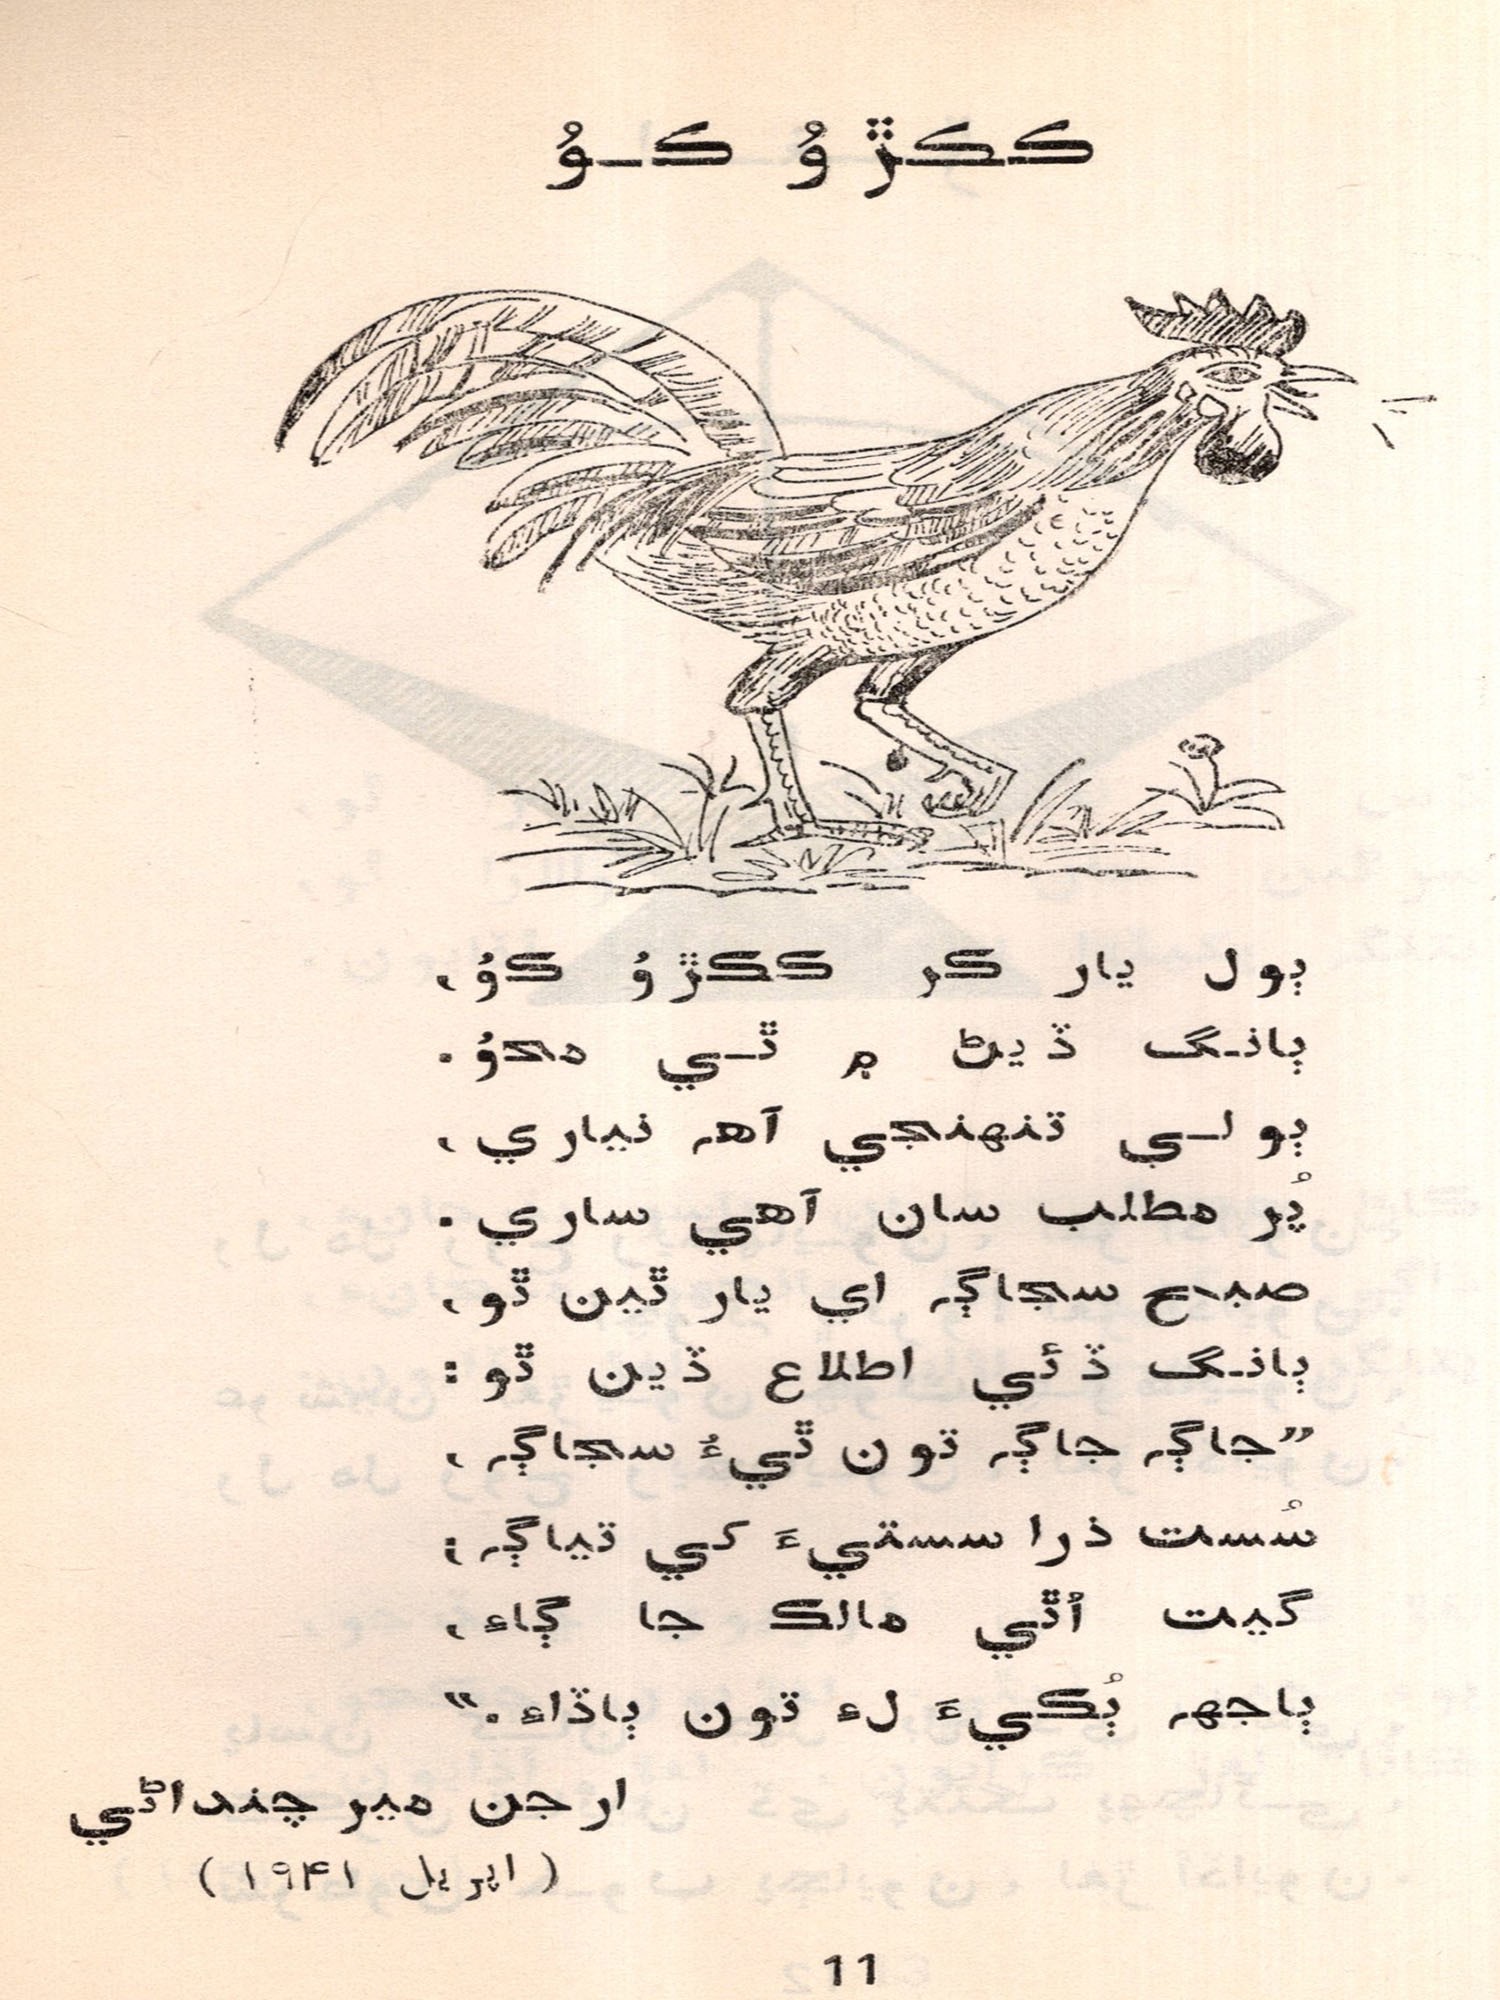 ڪڪڙوُ ڪوُ
ٻول يار ڪر ڪڪڙوُ ڪوُ،
ٻانگ ڏيڻ ۾ ٿي هڪوُ.
ٻولي تنهنجي آهہ نياري،
پُر مطلب سان آهي ساري.
صبح سجاڳہ اي يار ٿين ٿو،
ٻانگ ڏئي اطلاع ڏين ٿو:
”جاڳہ جاڳہ تون ٿيءُ سجاڳہ،
سُست ذرا سستيءَ کي تياڳہ؛
گيت اُٿي مالڪ جا ڳاءِ،
ٻاجهہ ٻُڪيءَ لءِ تون ٻاڏاءِ.“
ارجن ميرچنداڻي
(اپريل ۱۹۴۱)
11